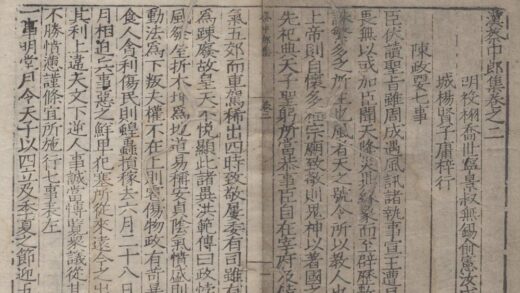 漢蔡中郎集卷之二
明牧栩喬世寧景叔無錫俞憲汝
城楊賢子庸梓行
陳政要七事
臣伏讀聖旨雖周成遇風訊諸執事宣王遭
畏無以或加臣聞天降災異緣象而至辟歷
誅繁多之所生也風者天之號令所以教人也
上帝則自懷多福宗廟致敬則鬼神以著國之
先祀典天子聖躬所當恭事臣自在宰府及
氣五郊而車駕稀出四時致敬屢委有司雖有
為疎廢故皇天不悅顯此諸異洪範傳曰政悖
風發屋折木坤為地道易稱安貞陰氣憤盛則
動法為下叛夫權不在上則雹傷物政有苛暴
食人貪利傷民則蝗蟲損稼去六月二十八日
月相迫兵事惡之鮮卑犯塞所從來遠今之出
其利上違天文下逆人事誠當博覽衆議從其
不勝憤懣謹條宜所施行七事表左
一事明堂月令天子以四立及季夏之節迎五